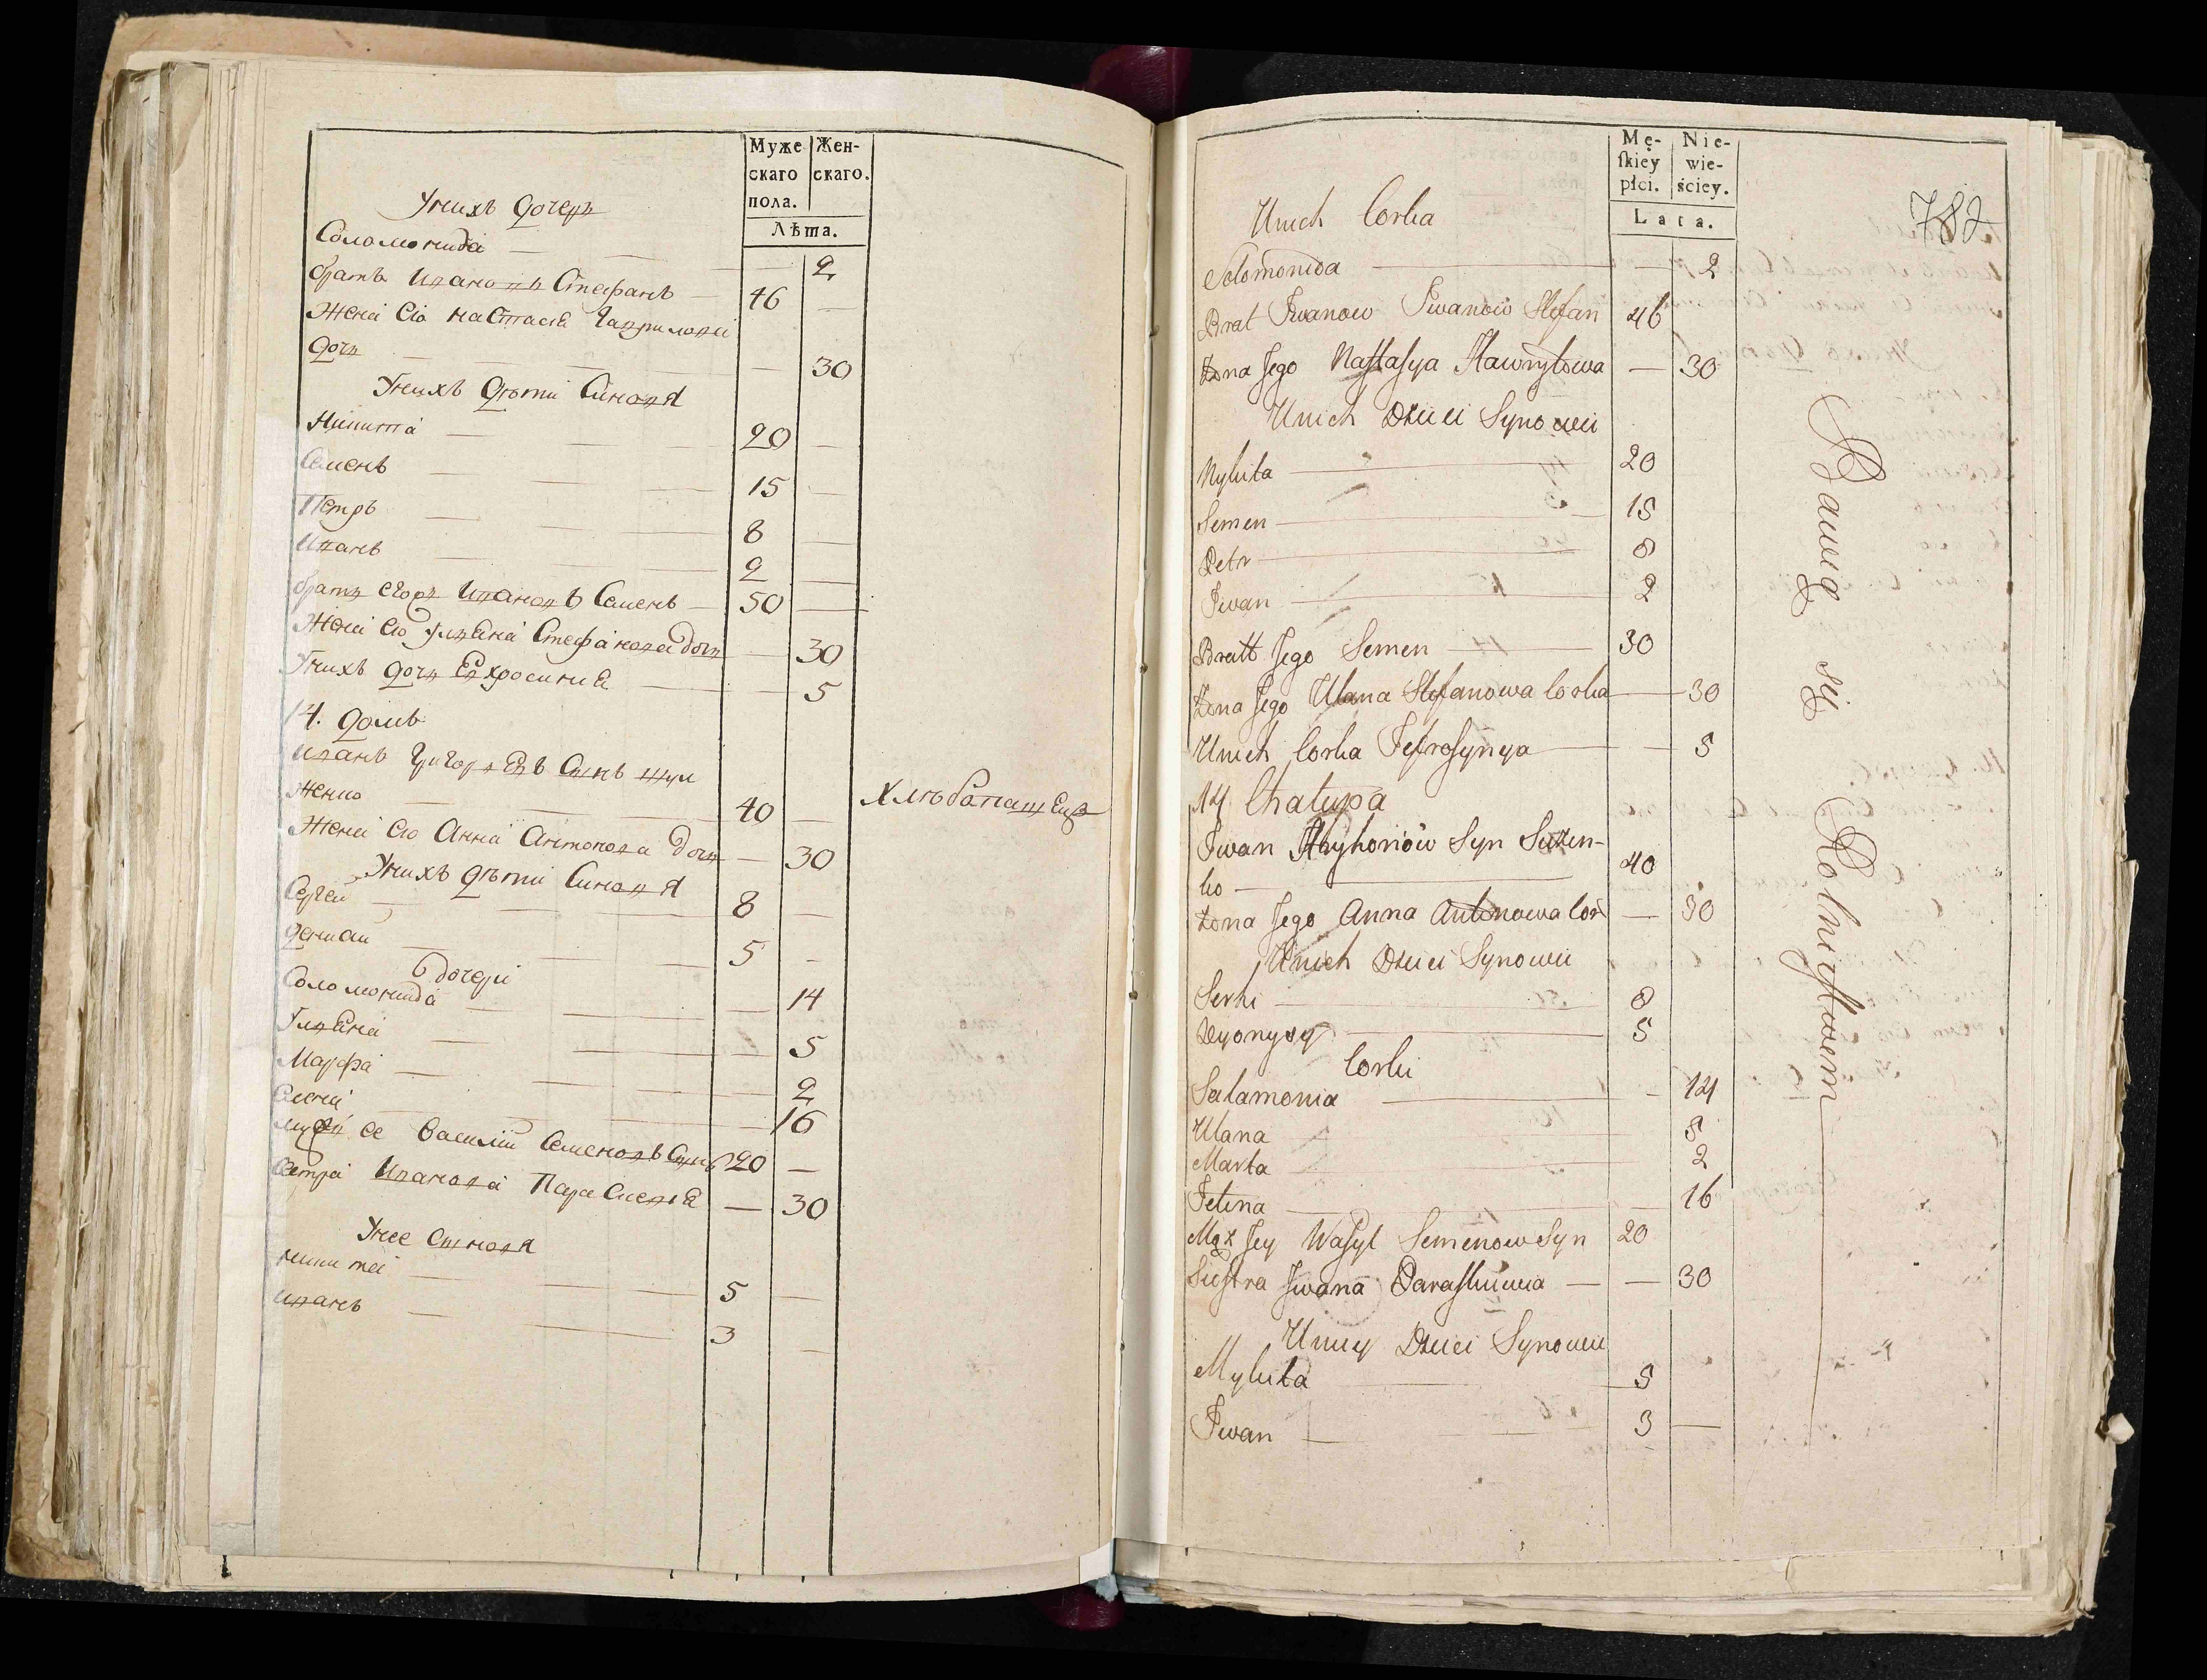 Муже
скаго
пола.
Жен-
скаго.
Лѣта.
Унихъ дочеръ
Соломонида — — — 2
братъ Ивановъ Стефанъ — 46 —
Жена Его Настасіа Гавриловa
дочъ — — — 30
Унихъ дѣти Синовя
Никита — — 20 —
Семенъ — — 15 —
Петръ — — 8 —
Иванъ — — 2 —
братъ Егоръ Ивановъ Семенъ — 50 —
Жена Его Уляна Стефанова дочъ — 30
Унихъ дочъ Евхросиниа — — 5
14. домъ
Иванъ Григорьевъ Сынъ Шул
женко — — 40 —
Хлѣбопашецъ
Жена Его Анна Антонова дочъ — 30
Унихъ дѣти Синовя
Сергей — — 8 —
Дениси — — 5 —
Дочери
Соломонида — — — 14
Уляна — — — 5
Марфа — — — 2
Елена — — — 16
мужъ Ее Василій Семеновъ Сынъ 20 —
Сестра Иванова Параскевіа — 30
Унее Синовя
Никита — — 5 —
Иванъ — — 3 —
Mę-
skiey
płci.
Nie-
wie-
ściey.
Lata.
782
Unich Corka
Solomonida — — 2
Brat Iwanow Iwanow Stefan 46
Żona Jego Nastasya Hawryłowa — 30
Unich Dzieci Synowie
Nykita — 20
Semen — 15
Petr — 8
Iwan — 2
Bratt Jego Semen — 30
Żona Jego Ulana Stefanowa Corka — 30
Unich Corka Jefrosynya — — 5
14 Chałupa
Iwan Hryhoriow Syn Suzen-
ko — 40
Żona Jego Anna Antonowa Cor — 30
Unich Dzieci Synowie
Serhi — 8
Dyonyzy — 5
Corki
Salamonia — - 14
Ulana — 5
Marta — 2
Jelena — — 16
Mąż Jey Wasyl Semenow Syn 20
Siestra Iwana Paraskiewia — — 30
Uniey Dzieci Synowie
Mykita — 5
Iwan — — 3 —
Bawią się Rolnictwem